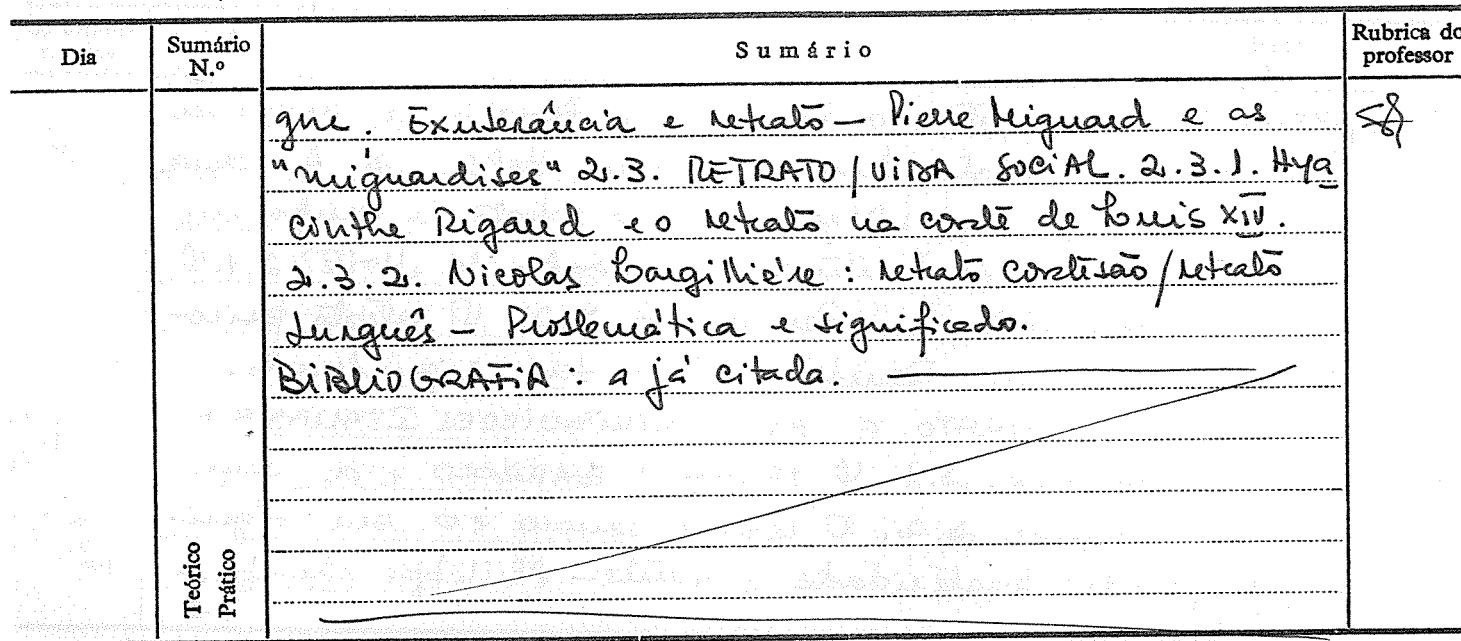 Dia
Sumário N.º
Sumário
Rubrica do professor
gne. Exuberância e retrato — Pierre Mignard e as
"mignardises" 2.3. RETRATO / VIDA SOCIAL. 2.3.1. Hya
cinthe Rigaud e o retrato na corte de Luis XIV.
2.3.2. Nicolas Largillière: retrato cortesão / retrato
burguês — Problemática e significado.
BIBLIOGRAFIA: a já citada.
Teórico
Prático